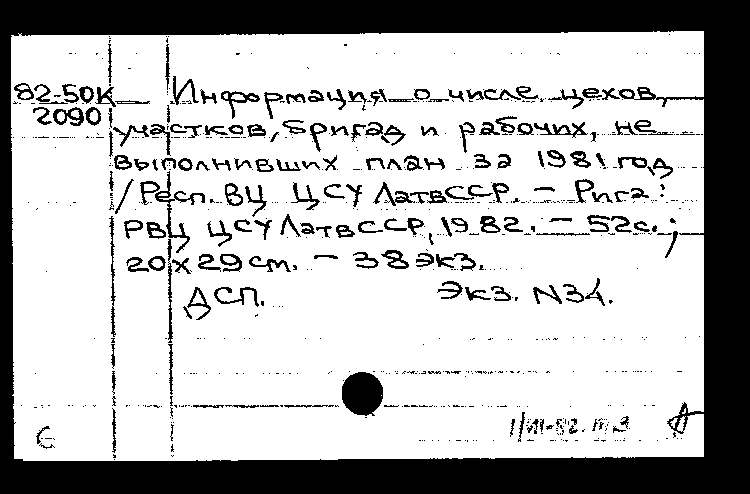 82-50К Информация о числе цехов,
2090 участков, бригад и рабочих, не
выполнивших план за 1981 год
/Респ. ВЦ ЦСУ ЛатвССР. – Рига:
РВЦ ЦСУ ЛатвССР, 1982. – 52с.;
20х29см. – 38экз.
ДСП. Экз. N34.